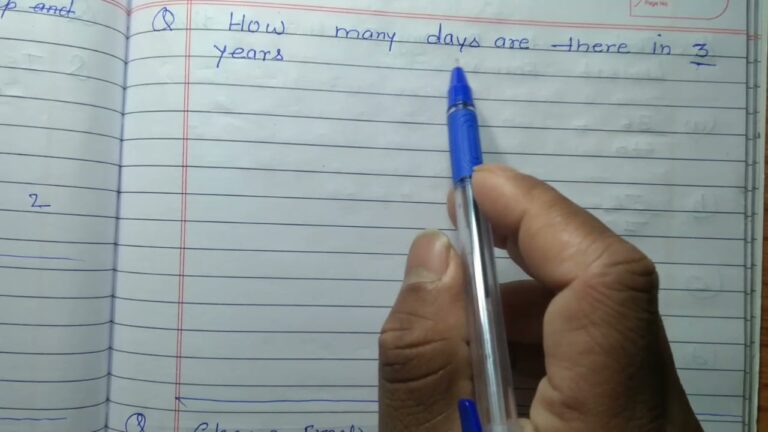 p and
Q How many days are there in 3
years
Page No.
2
Q